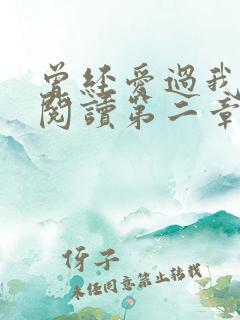 曾經愛過我
閱讀第二章
伢子
未经同意禁止转载